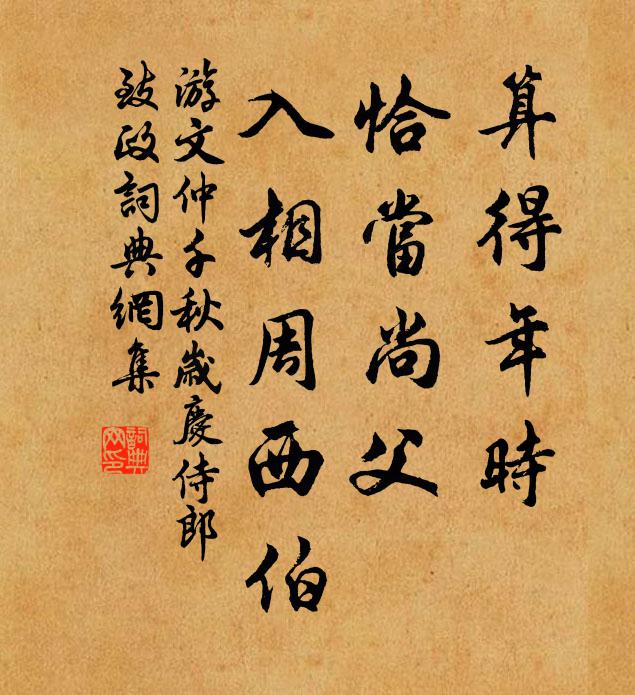 算得年時
恰當尚父
入相周西伯
游文仲千秋歲慶侍郎
致政詞典網集
詞典
网印